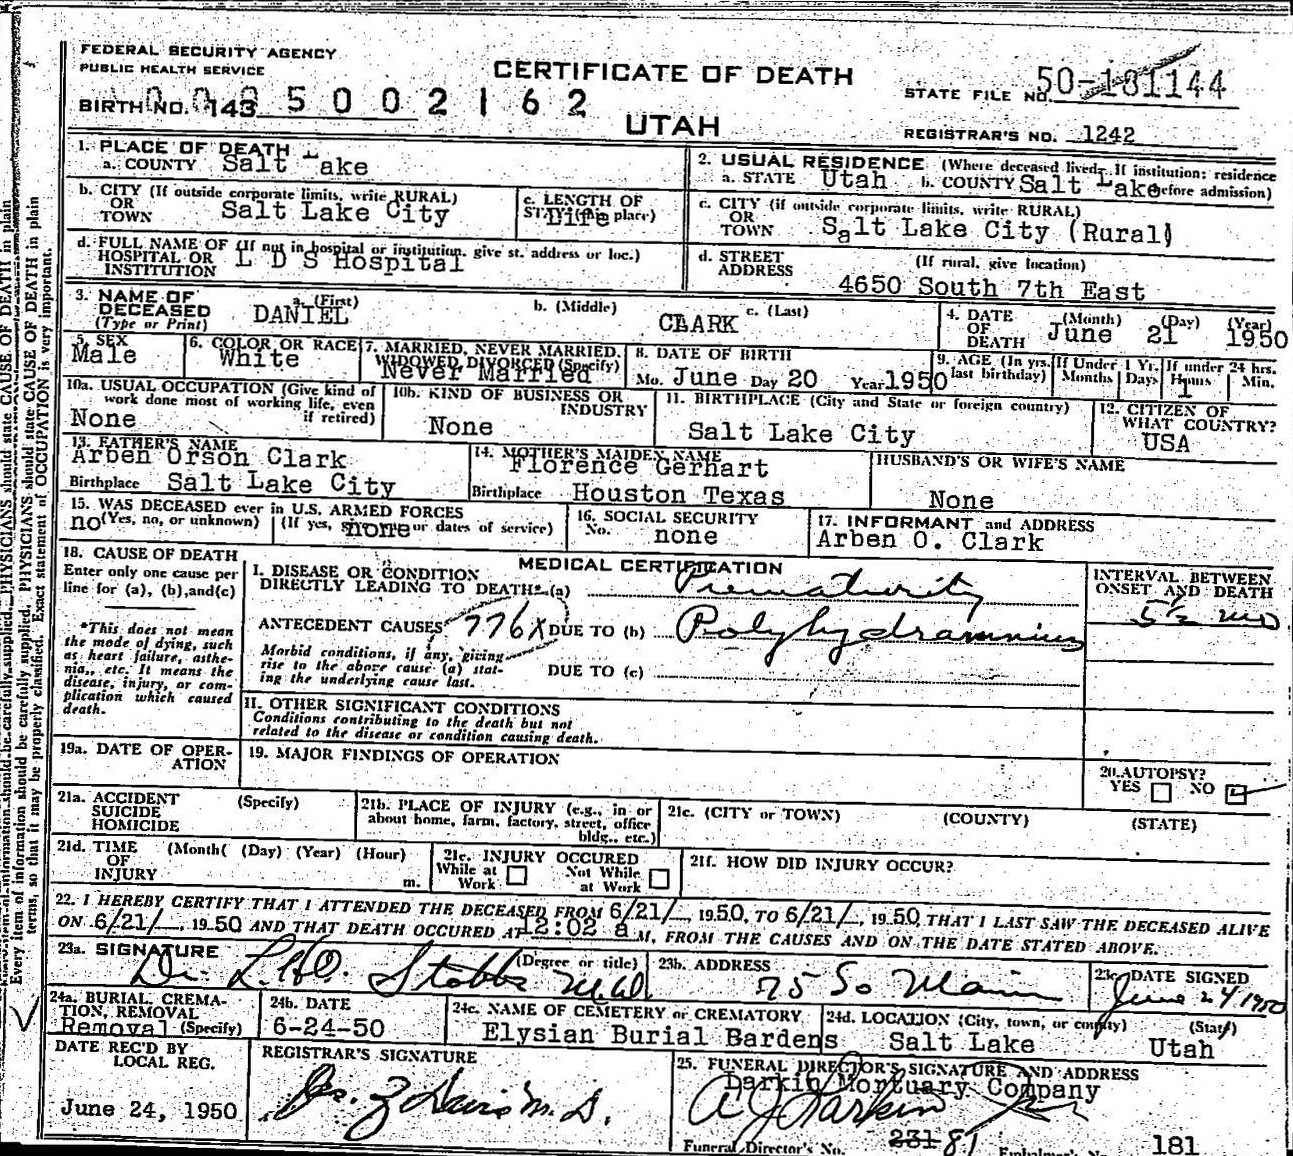 FEDERAL SECURITY AGENCY
PUBLIC HEALTH SERVICE
CERTIFICATE OF DEATH
STATE FILE NO. 50-181144
BIRTH NO. 143 5002162
UTAH
REGISTRAR'S NO. 1242
1. PLACE OF DEATH
a. COUNTY Salt Lake
2. USUAL RESIDENCE (Where deceased lived. If institution: residence before admission)
a. STATE Utah b. COUNTY Salt Lake
b. CITY (If outside corporate limits, write RURAL)
OR
TOWN Salt Lake City
c. LENGTH OF
STAY (in this place)
Life
c. CITY (if outside corporate limits, write RURAL)
OR
TOWN Salt Lake City (Rural)
d. FULL NAME OF (If not in hospital or institution, give st. address or loc.)
HOSPITAL OR
INSTITUTION L D S Hospital
d. STREET
ADDRESS
(If rural, give location)
4650 South 7th East
3. NAME OF
DECEASED
(Type or Print)
a. (First)
DANIEL
b. (Middle)
c. (Last)
CLARK
4. DATE
OF
DEATH
(Month) (Day) (Year)
June 21 1950
5. SEX
Male
6. COLOR OR RACE
White
7. MARRIED, NEVER MARRIED,
WIDOWED, DIVORCED (Specify)
Never Married
8. DATE OF BIRTH
Mo. June Day 20 Year 1950
9. AGE (In yrs.
last birthday)
If Under 1 Yr.
Months Days
If under 24 hrs.
Hours Min.
1
10a. USUAL OCCUPATION (Give kind of
work done most of working life, even
if retired)
None
10b. KIND OF BUSINESS OR
INDUSTRY
None
11. BIRTHPLACE (City and State or foreign country)
Salt Lake City
12. CITIZEN OF
WHAT COUNTRY?
USA
13. FATHER'S NAME
Arben Orson Clark
Birthplace Salt Lake City
14. MOTHER'S MAIDEN NAME
Florence Gerhart
Birthplace Houston Texas
HUSBAND'S OR WIFE'S NAME
None
15. WAS DECEASED ever in U.S. ARMED FORCES
no (Yes, no, or unknown) (If yes, give war or dates of service)
none
16. SOCIAL SECURITY
No. none
17. INFORMANT and ADDRESS
Arben O. Clark
18. CAUSE OF DEATH
Enter only one cause per
line for (a), (b), and (c)
*This does not mean
the mode of dying, such
as heart failure, asthe-
nia, etc. It means the
disease, injury, or com-
plication which caused
death.
MEDICAL CERTIFICATION
I. DISEASE OR CONDITION
DIRECTLY LEADING TO DEATH* (a) Prematurity
ANTECEDENT CAUSES 776X DUE TO (b) Polyhydramnius
Morbid conditions, if any, giving
rise to the above cause (a) stat-
ing the underlying cause last.
DUE TO (c)
INTERVAL BETWEEN
ONSET AND DEATH
5½ mo
II. OTHER SIGNIFICANT CONDITIONS
Conditions contributing to the death but not
related to the disease or condition causing death.
19a. DATE OF OPER-
ATION
19. MAJOR FINDINGS OF OPERATION
20. AUTOPSY?
YES NO
21a. ACCIDENT (Specify)
SUICIDE
HOMICIDE
21b. PLACE OF INJURY (e.g., in or
about home, farm, factory, street, office
bldg., etc.)
21c. (CITY or TOWN) (COUNTY) (STATE)
21d. TIME (Month( (Day) (Year) (Hour)
OF
INJURY m.
21e. INJURY OCCURED
While at Work Not While at Work
21f. HOW DID INJURY OCCUR?
22. I HEREBY CERTIFY THAT I ATTENDED THE DECEASED FROM 6/21/, 1950, TO 6/21/, 1950, THAT I LAST SAW THE DECEASED ALIVE
ON 6/21/, 1950 AND THAT DEATH OCCURED AT 12:02 a M, FROM THE CAUSES AND ON THE DATE STATED ABOVE.
23a. SIGNATURE (Degree or title)
Dr. L.H.O. Stobbe M.D.
23b. ADDRESS
75 So Main
23c. DATE SIGNED
June 24/1950
24a. BURIAL, CREMA-
TION, REMOVAL
Removal (Specify)
24b. DATE
6-24-50
24c. NAME OF CEMETERY or CREMATORY
Elysian Burial Bardens
24d. LOCATION (City, town, or county) (State)
Salt Lake Utah
DATE REC'D BY
LOCAL REG.
June 24, 1950
REGISTRAR'S SIGNATURE
M.D.
25. FUNERAL DIRECTOR'S SIGNATURE AND ADDRESS
Larkin Mortuary Company
A J Larkin
Funeral Director's No. 231 81 Embalmer's No. 181
Every item of information should be carefully supplied. PHYSICIANS should state CAUSE OF DEATH in plain
terms, so that it may be properly classified. Exact statement of OCCUPATION is very important.